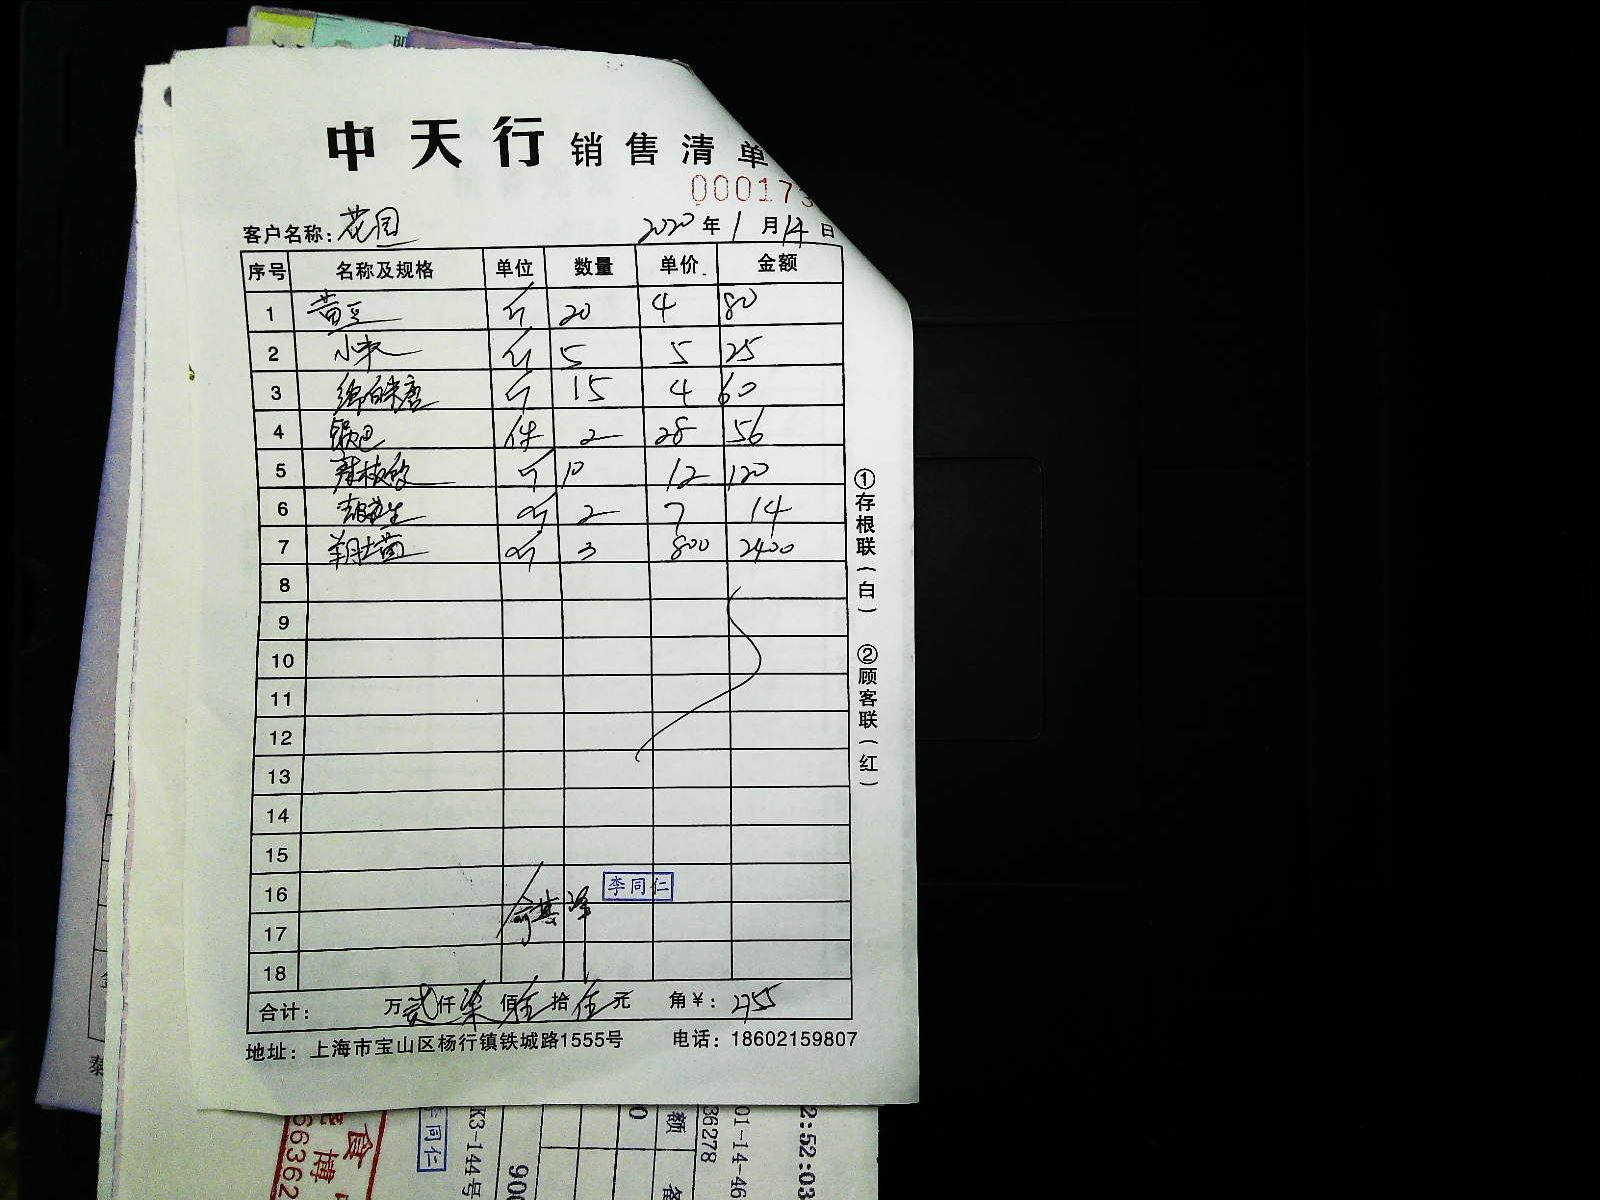 中天行 销售清单
000173
客户名称: 花园 2020年1月14日
序号 名称及规格 单位 数量 单价 金额
1 黄豆 斤 20 4 80
2 小米 斤 5 5 25
3 绵白糖 斤 15 4 60
4 锅巴 件 2 28 56
5 辣椒 斤 10 12 120
6 斤 2 7 14
7 斤 3 800 2400
8
9
10
11
12
13
14
15
16 李同仁
17
18
合计: 万贰仟柒佰伍拾伍元 角¥: 2755
地址: 上海市宝山区杨行镇铁城路1555号 电话: 18602159807
①存根联(白) ②顾客联(红)
李同仁
K3-144号
900
额
36278
01-14-46
2:52:03
食
博
66362
泰